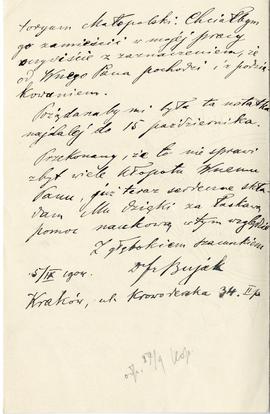 toryum Małopolski. Chciałbym
go zamieścić w mojej pracy
oczywiście z zaznaczeniem, że
od Wnego Pana pochodzi i z podzię-
kowaniem.
Pożądaną by mi była ta notatka
najdalej do 15 października.
Przekonany, że to nie sprawi
zbyt wiele kłopotu Wnemu
Panu, już teraz serdeczne skła-
dam Mu dzięki za łaskawą
pomoc naukową w tym względzie
Z głębokiem szacunkiem
5/IX 1904. Dr Fr Bujak
Kraków, ul. Krowoderska 34. II p.
29/9